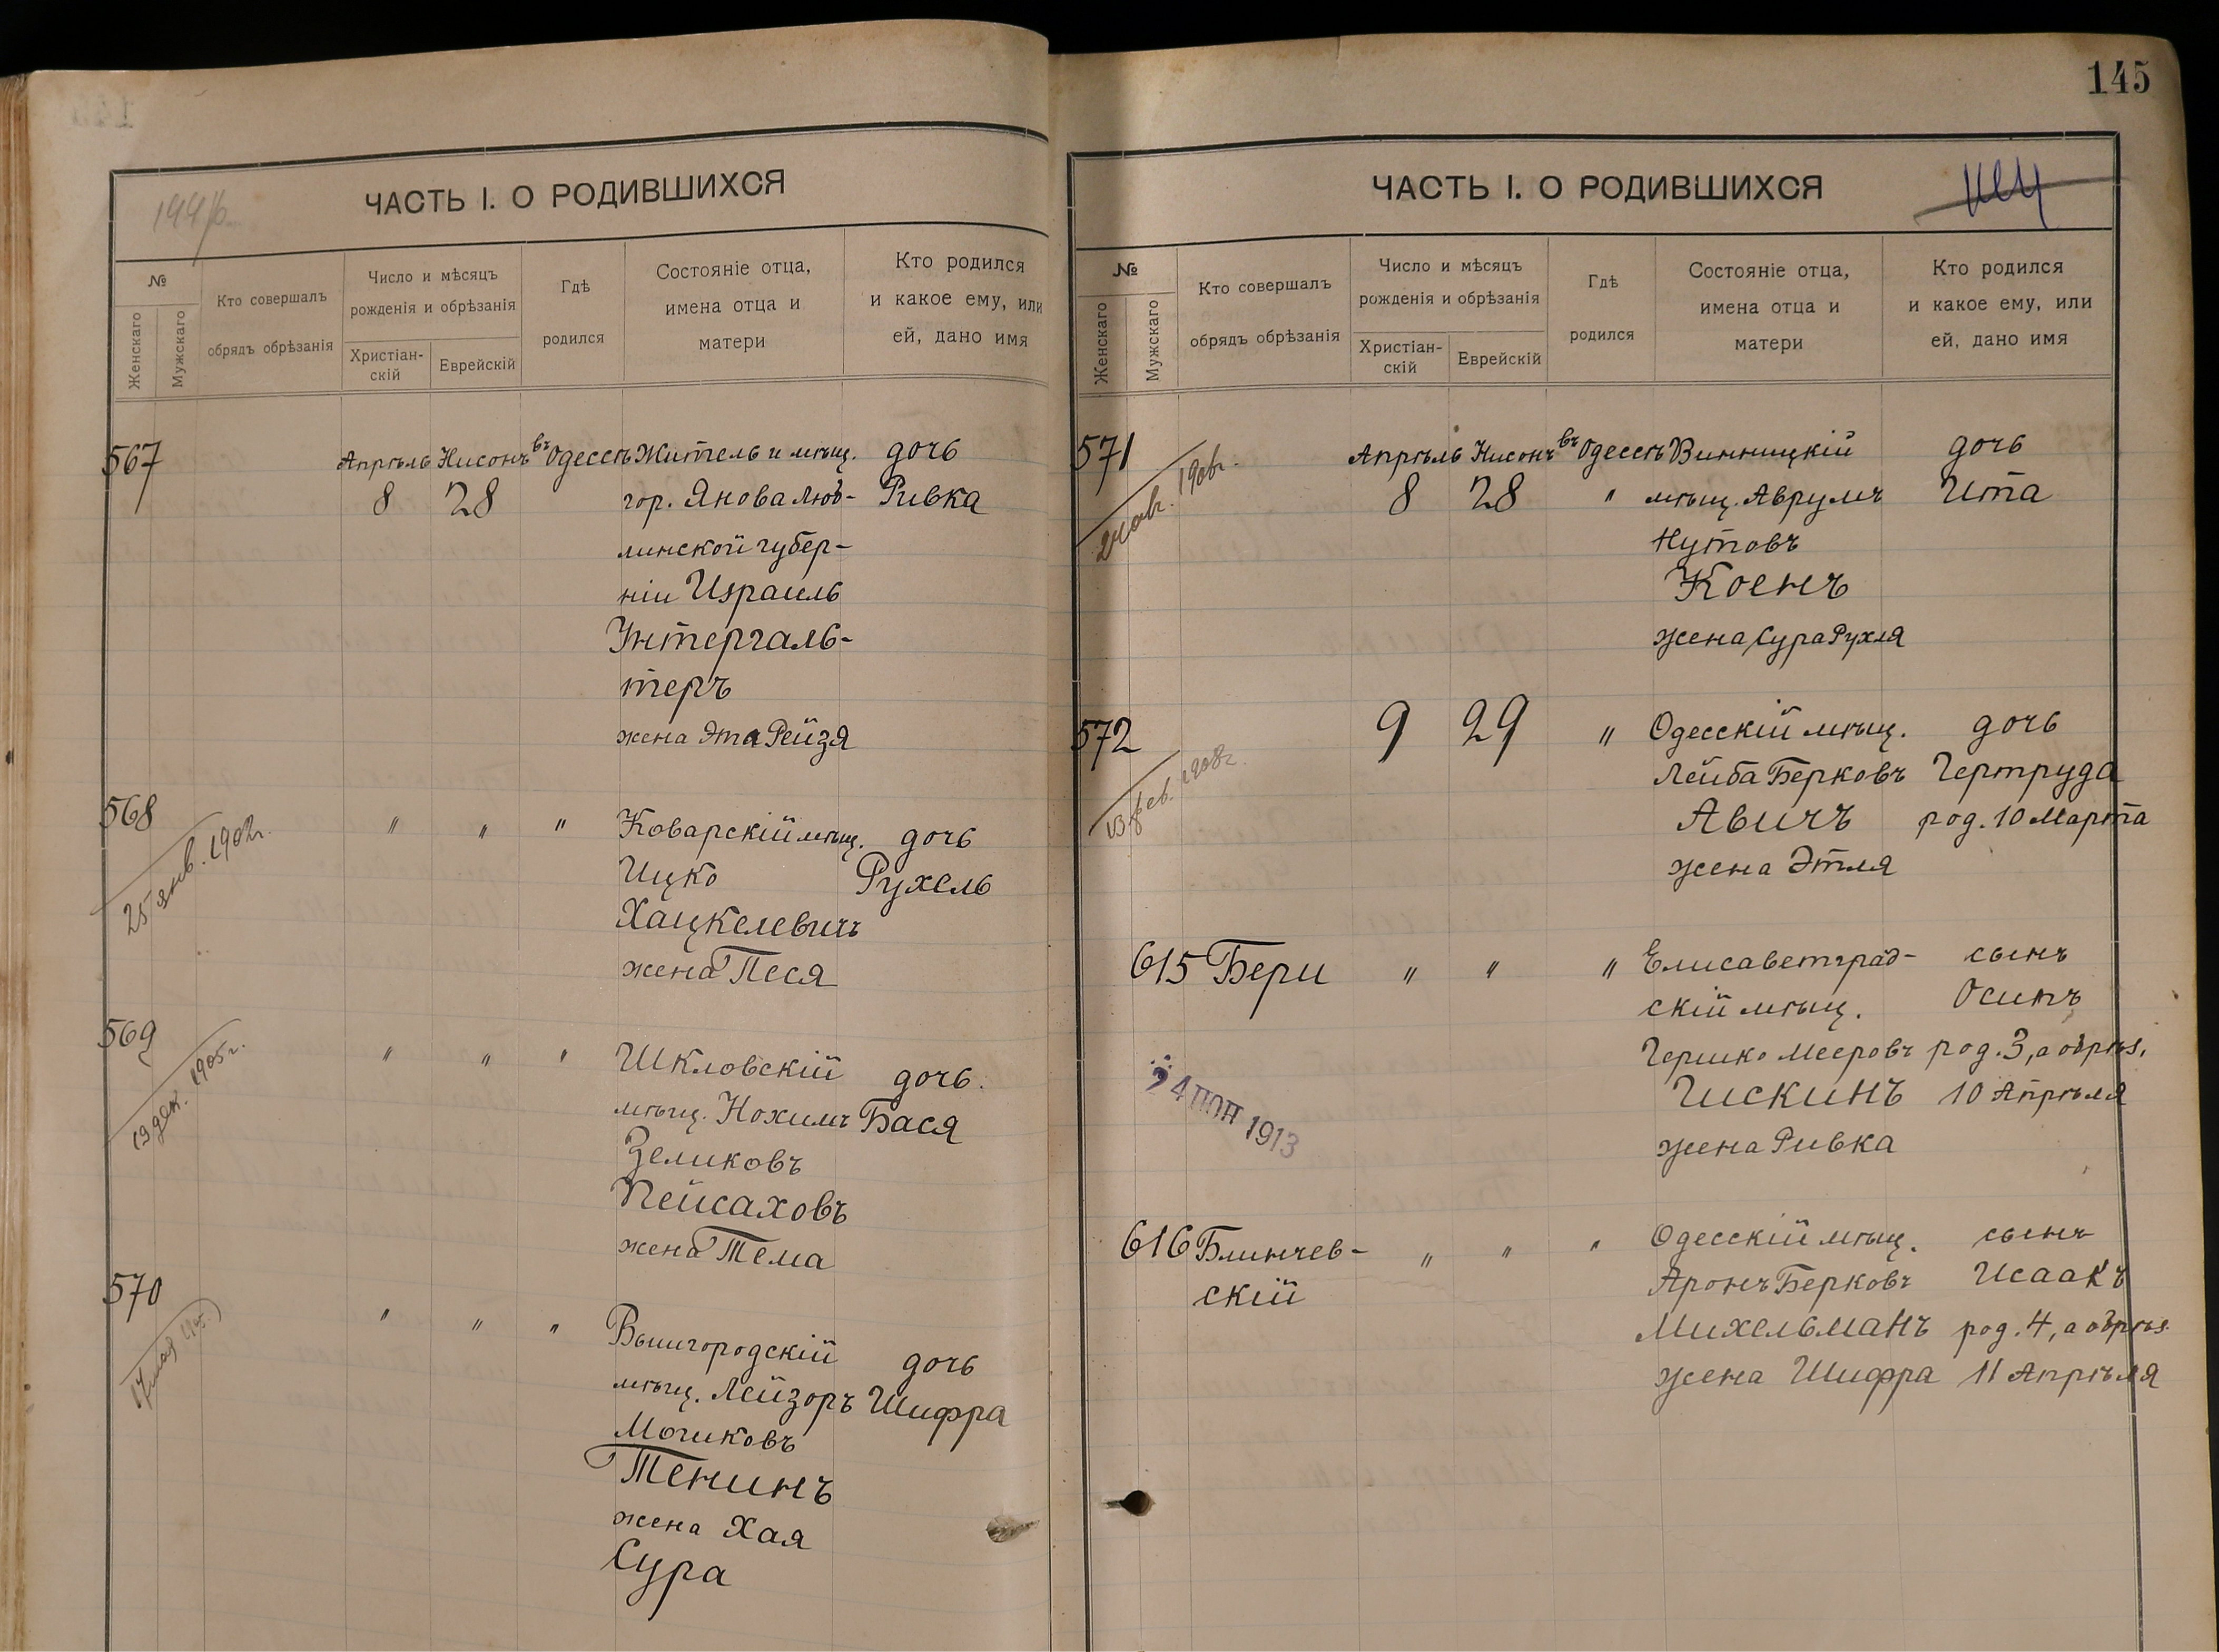 145
ЧАСТЬ I. О РОДИВШИХСЯ
№
Женскаго
Мужскаго
Кто совершалъ
обрядъ обрѣзанія
Число и мѣсяцъ
рожденія и обрѣзанія
Христіан-
скій
Еврейскій
Гдѣ
родился
Состояніе отца,
имена отца и
матери
Кто родился
и какое ему, или
ей, дано имя
567
Апрѣль Нисонъ въ Одессѣ Житель и мѣщ. дочь
8 28 гор. Янова Люб- Ривка
линской губер-
ніи Израиль
Унтергаль-
теръ
жена Эта Рейзя
568
25 янв. 1902г.
" " " Коварскій мѣщ. дочь
Ицко Рухель
Хацкелевичъ
жена Песя
569
19 дек. 1905г.
" " " Шкловскій дочь.
мѣщ. Нохимъ Бася
Зеликовъ
Пейсаховъ
жена Тема
570
" " " Вышгородскій дочь
мѣщ. Лейзоръ Шифра
Мошковъ
Тенинъ
жена Хая
Сура
ЧАСТЬ I. О РОДИВШИХСЯ
№
Женскаго
Мужскаго
Кто совершалъ
обрядъ обрѣзанія
Число и мѣсяцъ
рожденія и обрѣзанія
Христіан-
скій
Еврейскій
Гдѣ
родился
Состояніе отца,
имена отца и
матери
Кто родился
и какое ему, или
ей, дано имя
571 Апрѣль Нисонъ въ Одессѣ Винницкій дочь
8 28 " мѣщ. Аврумъ Ита
Нутовъ
Коенъ
жена Сура Рухля
572 9 29 " Одесскій мѣщ. дочь
13 фев. 1908г.
Лейба Берковъ Гертруда
Авичъ род. 10 Марта
жена Этля
615 Бери " " " Елисаветград- сынъ
скій мѣщ. Осипъ
Гершко Мееровъ род. 3, а обрѣз.
Гискинъ 10 Апрѣля
жена Ривка
1913
616 Блинчев- " " " Одесскій мѣщ. сынъ
скій Аронъ Берковъ Исаакъ
Михельманъ род. 4, а обрѣз.
жена Шифра 11 Апрѣля